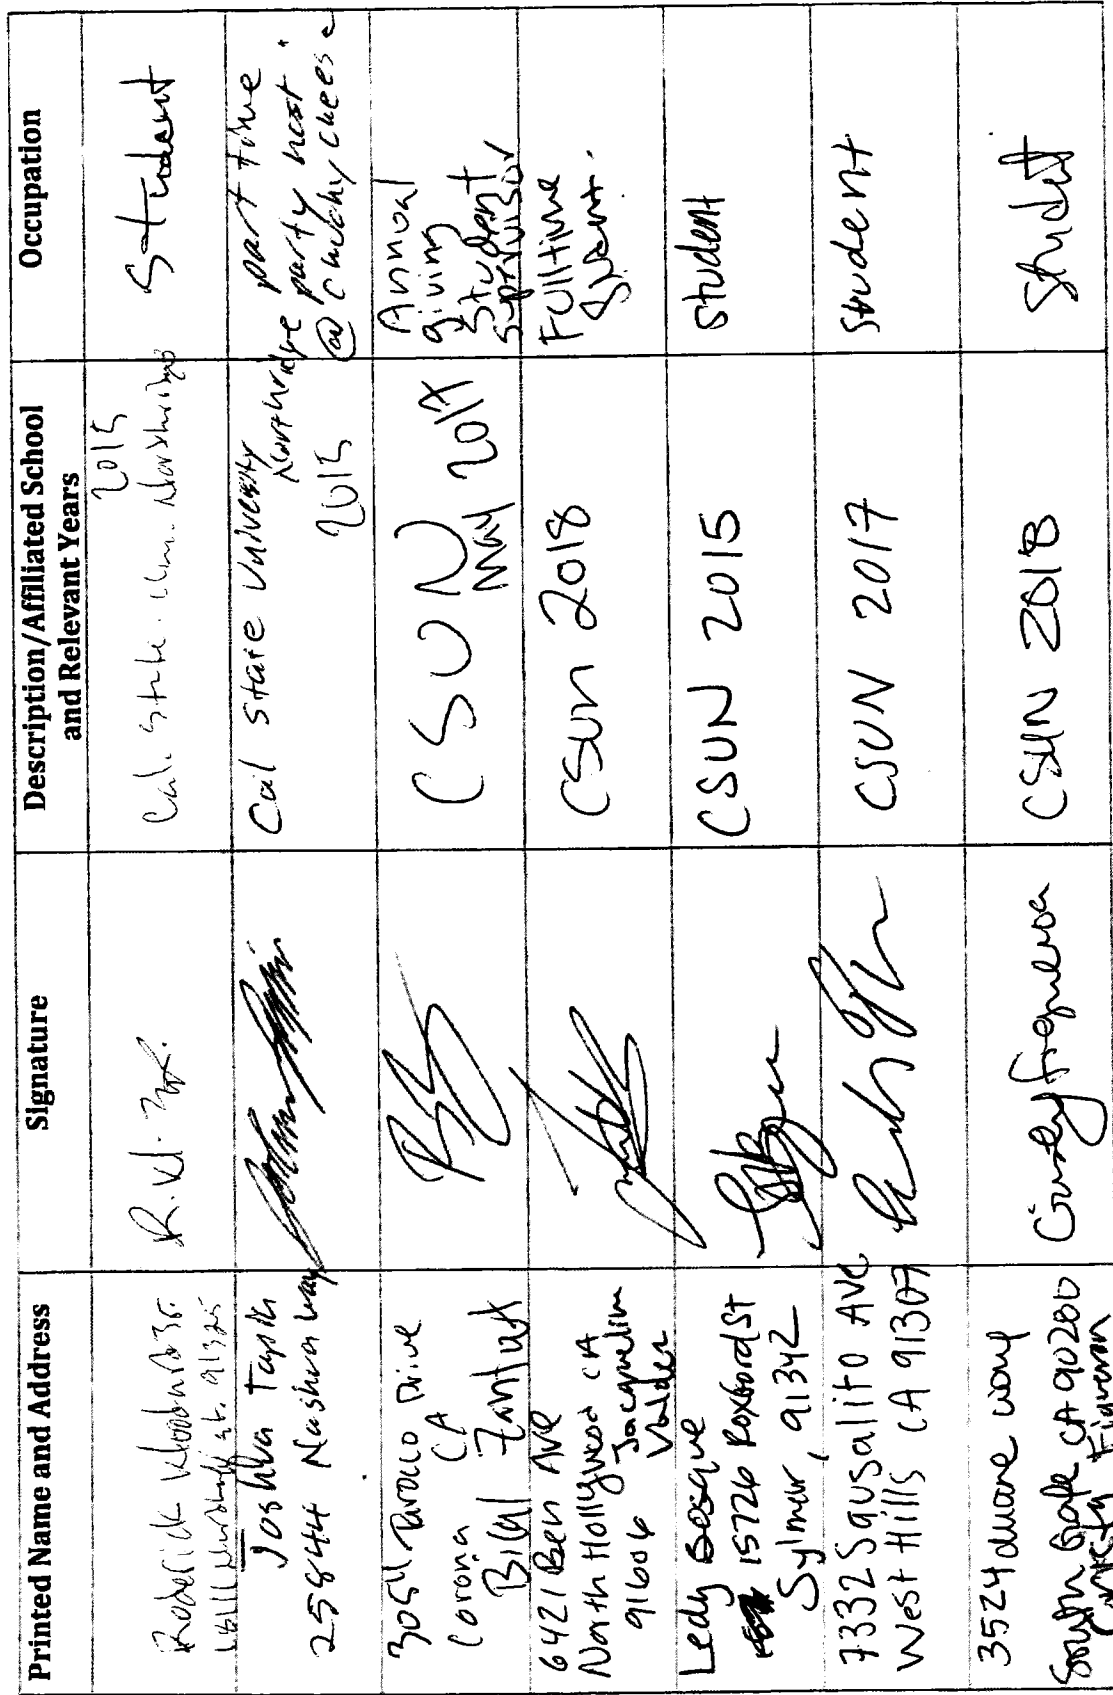 Printed Name and Address
Signature
Description/Affiliated School
and Relevant Years
Occupation
Roderick
st. 91325
Cal. State. Univ. Northridge
2015
Student
Joshua
25844 Nashua way
Cal State University
Northridge
2015
part time
party host
@ chuck chees
3054 Drive
Corona CA
Bilal
CSUN
May 2017
Annual
giving
Student
Suprvisor
6421 Ben Ave
North Hollywood CA
91606 Jacquelin
Valdez
CSUN 2018
Fulltime
Student.
Ledy
15726 Roxford St
Sylmar, 91342
CSUN 2015
student
7332 Sausalito AVE
West Hills CA 91307
CSUN 2017
student
3524 duane way
South Gate CA 90280
Cinsty Figueroa
CSUN 2018
Student